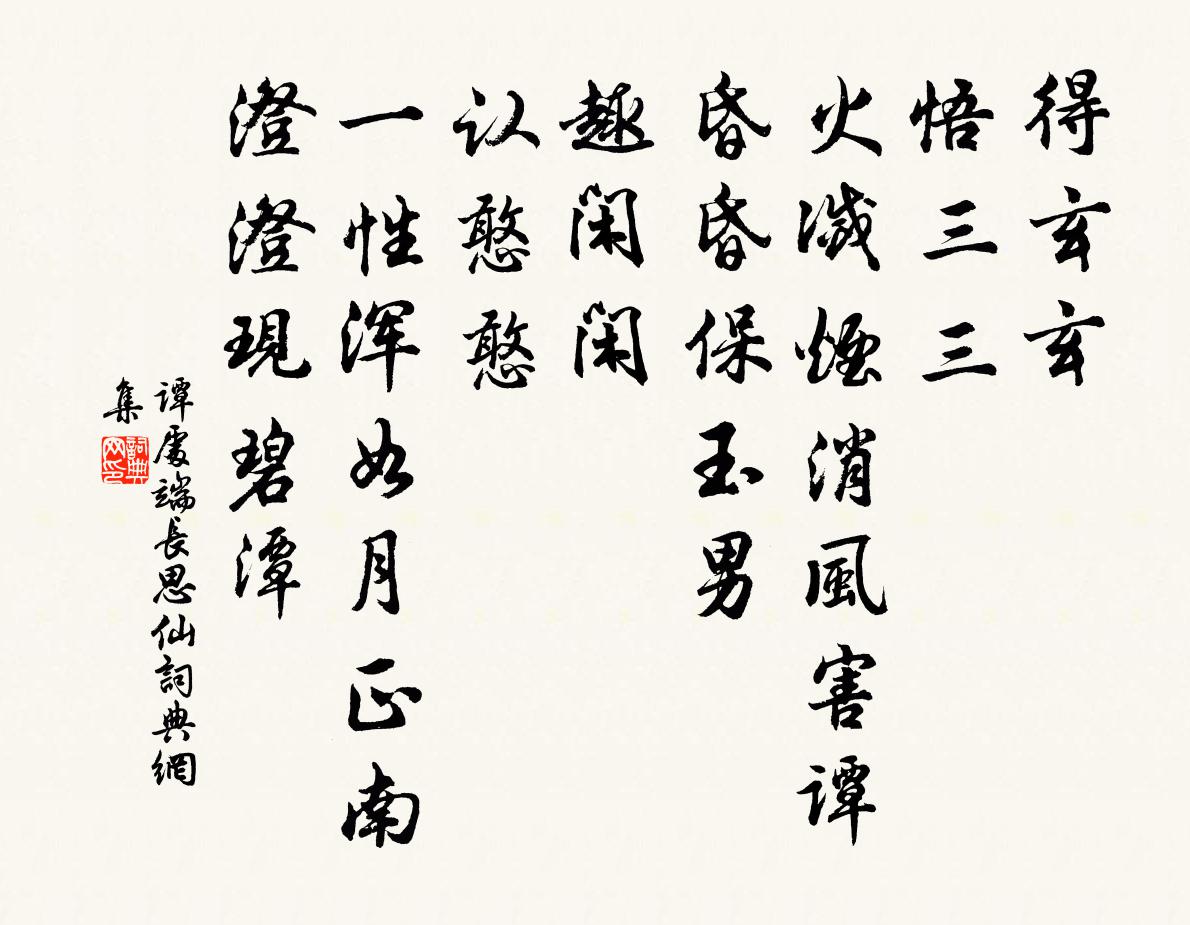 得玄玄
悟三三
火滅煙消風害谭
昏昏保玉男
趣闲闲
认憨憨
一性浑如月正南
澄澄現碧潭
谭處端長思仙詞典網
集
詞典
网印